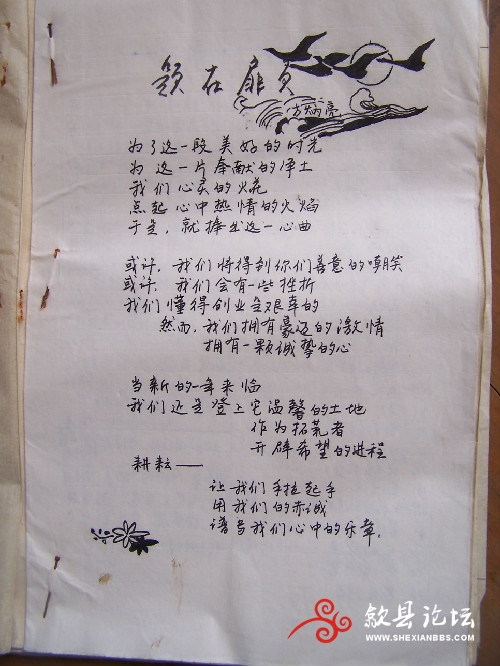 题在扉页
方炳亮
为了这一段美好的时光
为这一片奉献的净土
我们心灵的火花
点起心中热情的火焰
于是，就捧出这一心曲
或许，我们将得到你们善意的嘲笑
或许，我们会有一些挫折
我们懂得创业是艰辛的
然而，我们拥有豪迈的激情
拥有一颗诚挚的心
当新的一年来临
我们还是登上它温馨的土地
作为拓荒者
开辟希望的进程
耕耘——
让我们手拉起手
用我们的赤诚
谱写我们心中的乐章。
歙县论坛
WWW.SHEXIANBBS.COM